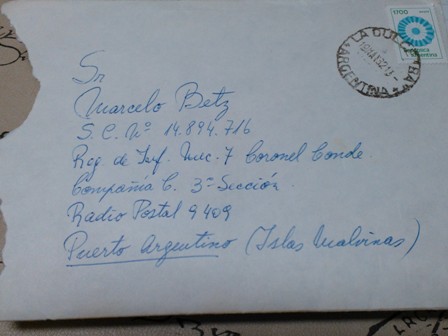 1700
República
Argentina
LA DULCE
ARGENTINA
Sr
Marcelo Betz
S. C. Nº 14.894.716
Reg. de Inf. Mec. 7 Coronel Conde
Compañía C. 3ª Sección
Radio Postal 9409
Puerto Argentino (Islas Malvinas)